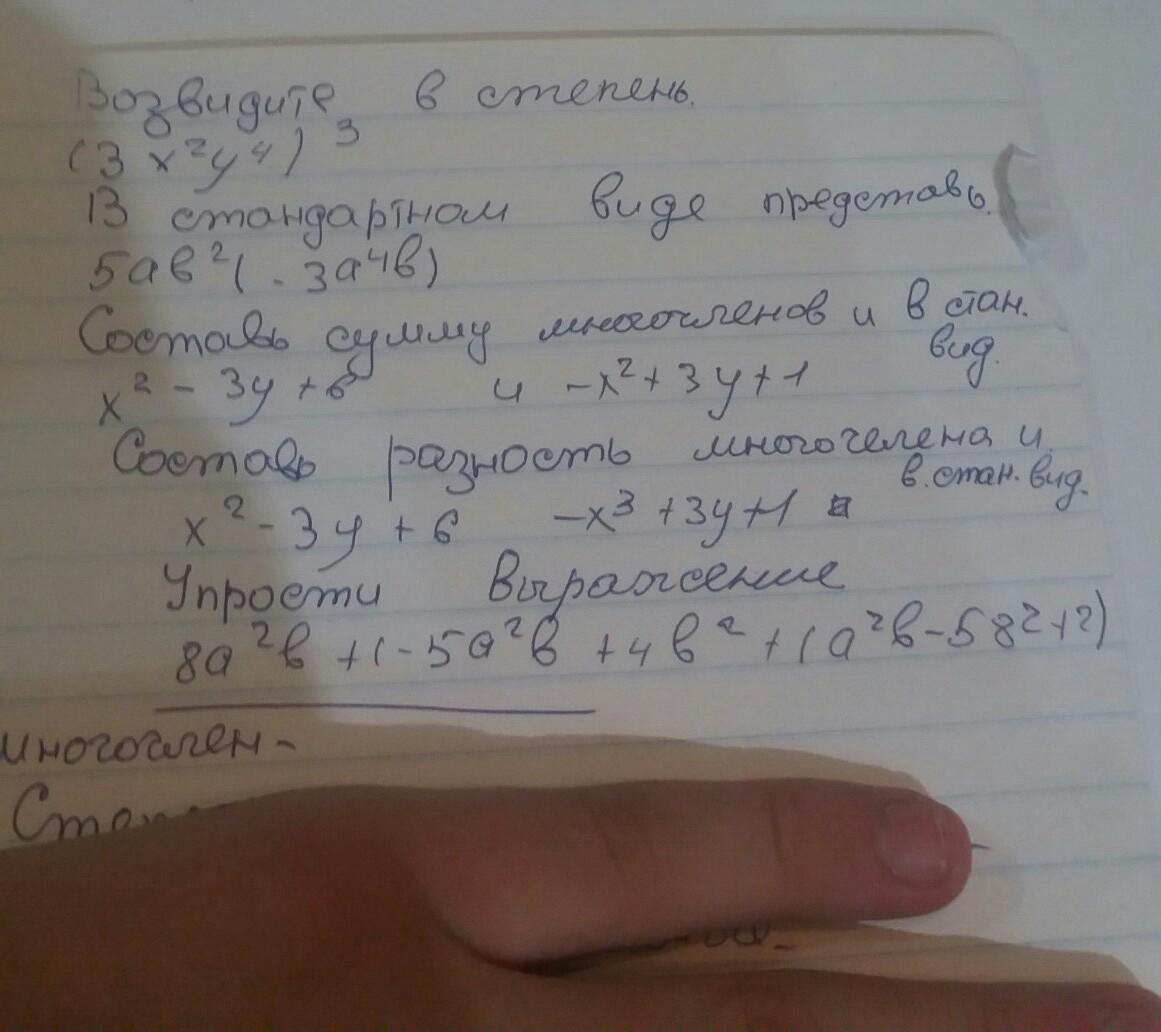 Возвидите в степень.
(3x²y⁴)³
В стандартном виде представь.
5ав²(-3а⁴в)
Составь сумму многочленов и в стан. вид.
x² - 3y + 6 и -x² + 3y + 1
Составь разность многочелена и в.стан.вид.
x² - 3y + 6 -x³ + 3y + 1
Упрости выражение
8а²в + (-5а²в + 4в² + (а²в - 5в² + 2)
многочлен-